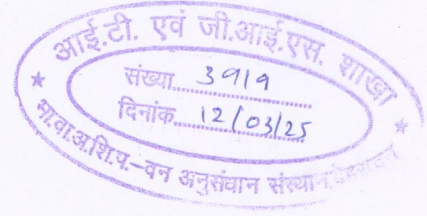 आई.टी. एवं जी.आई.एस. शाखा
संख्या.... 3919
दिनांक.... 12/03/25
भा.वा.अ.शि.प.-वन अनुसंधान संस्थान,